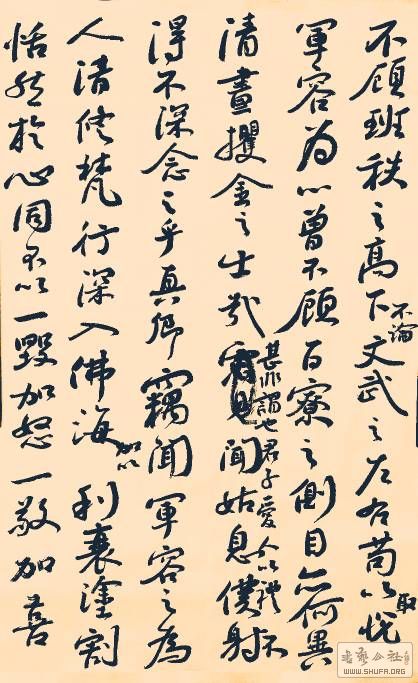 不顧班秩之高下不論文武之左右苟以取悦
軍容為心曾不顧百寮之側目亦何異
清晝攫金之士哉甚非謂也君子愛人以禮不聞姑息僕射
得不深念之乎真卿竊聞軍容之為
人清修梵行深入佛海加以利衰塗割
恬然於心固不以一毀加怒一敬加喜
書藝公社
WWW.SHUFA.ORG